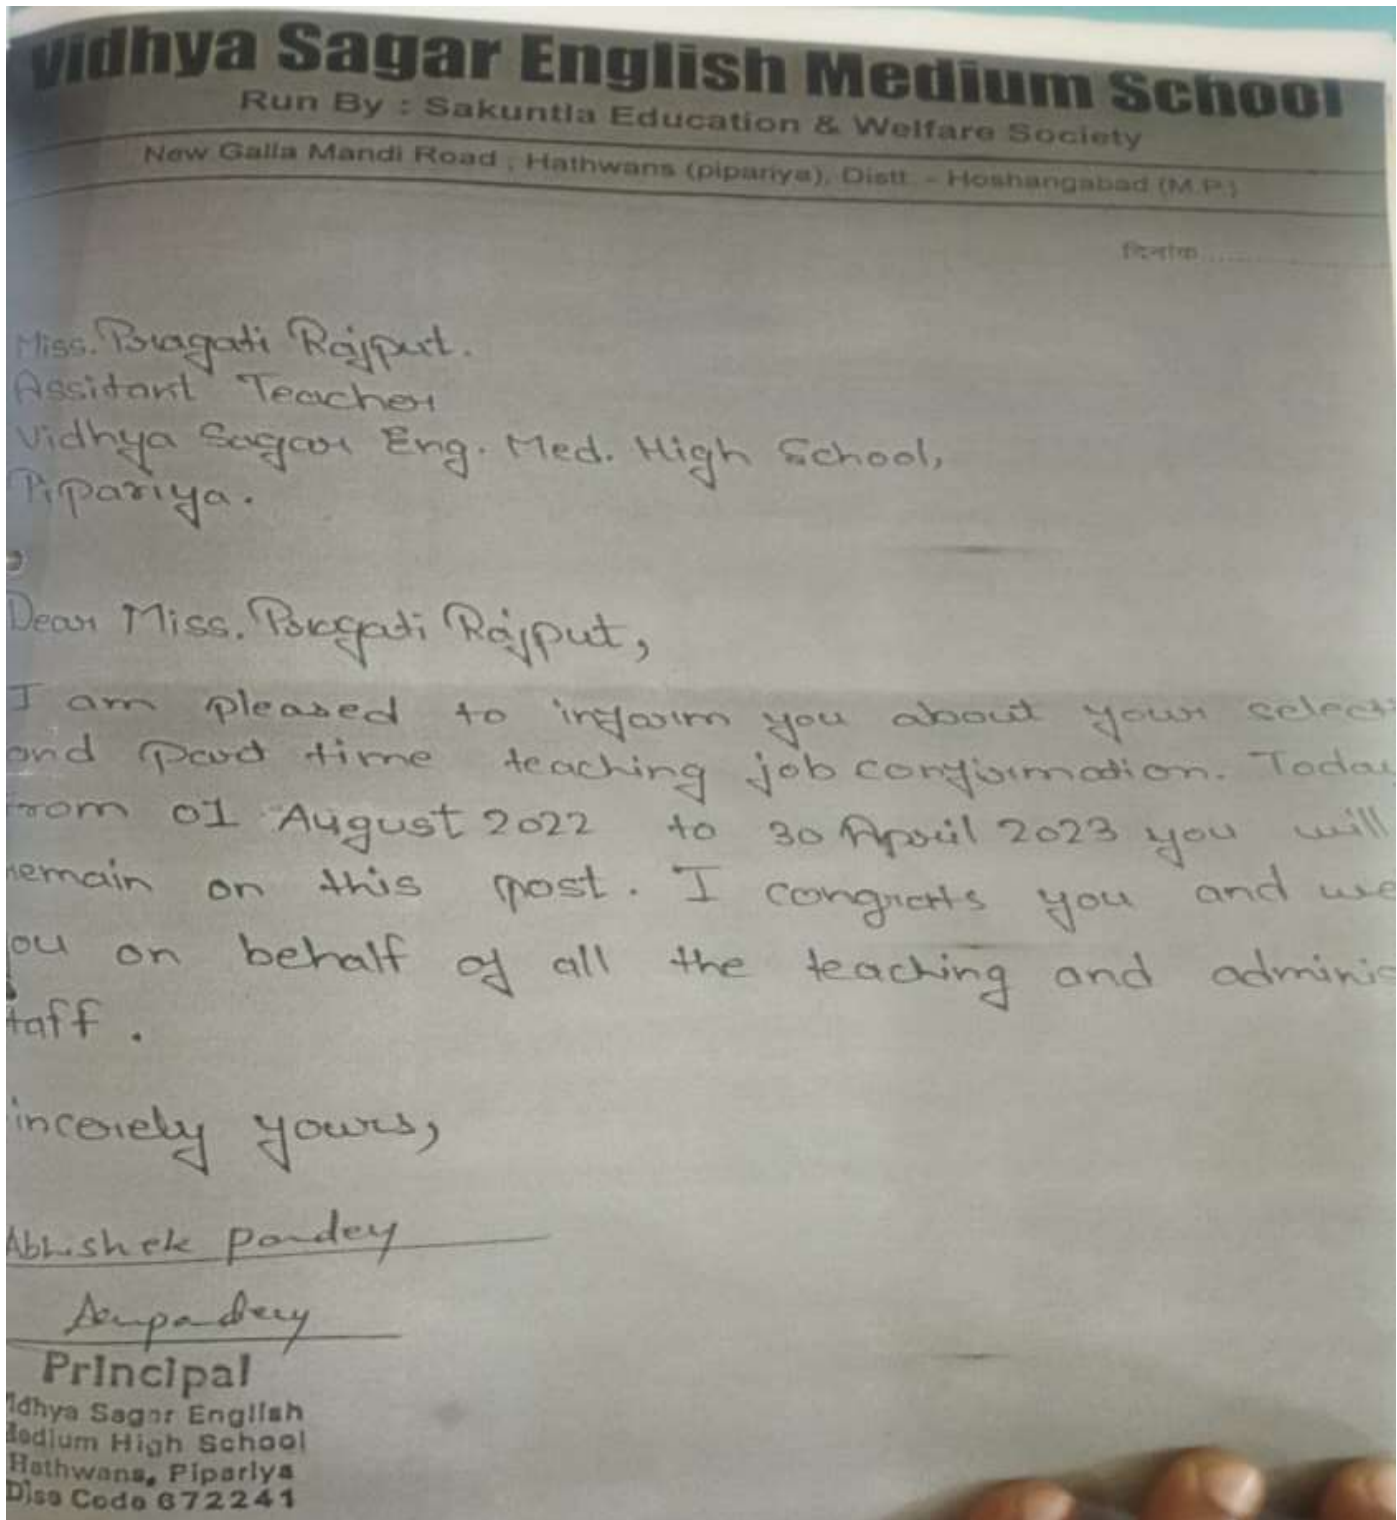 Vidhya Sagar English Medium School
Run By : Sakuntla Education & Welfare Society
New Galla Mandi Road , Hathwans (pipariya), Distt. - Hoshangabad (M.P.)
दिनांक..............
Miss. Pragati Rajput.
Assitant Teacher
Vidhya Sagar Eng. Med. High School,
Pipariya.
Dear Miss. Pragati Rajput,
I am pleased to inform you about your select
and part time teaching job confirmation. Today
from 01 August 2022 to 30 April 2023 you will
remain on this post. I congrats you and we
ou on behalf of all the teaching and adminis
taff.
incerely yours,
Abhishek Pandey
Principal
idhya Sagar English
Medium High School
Hathwans, Pipariya
Dise Code 672241